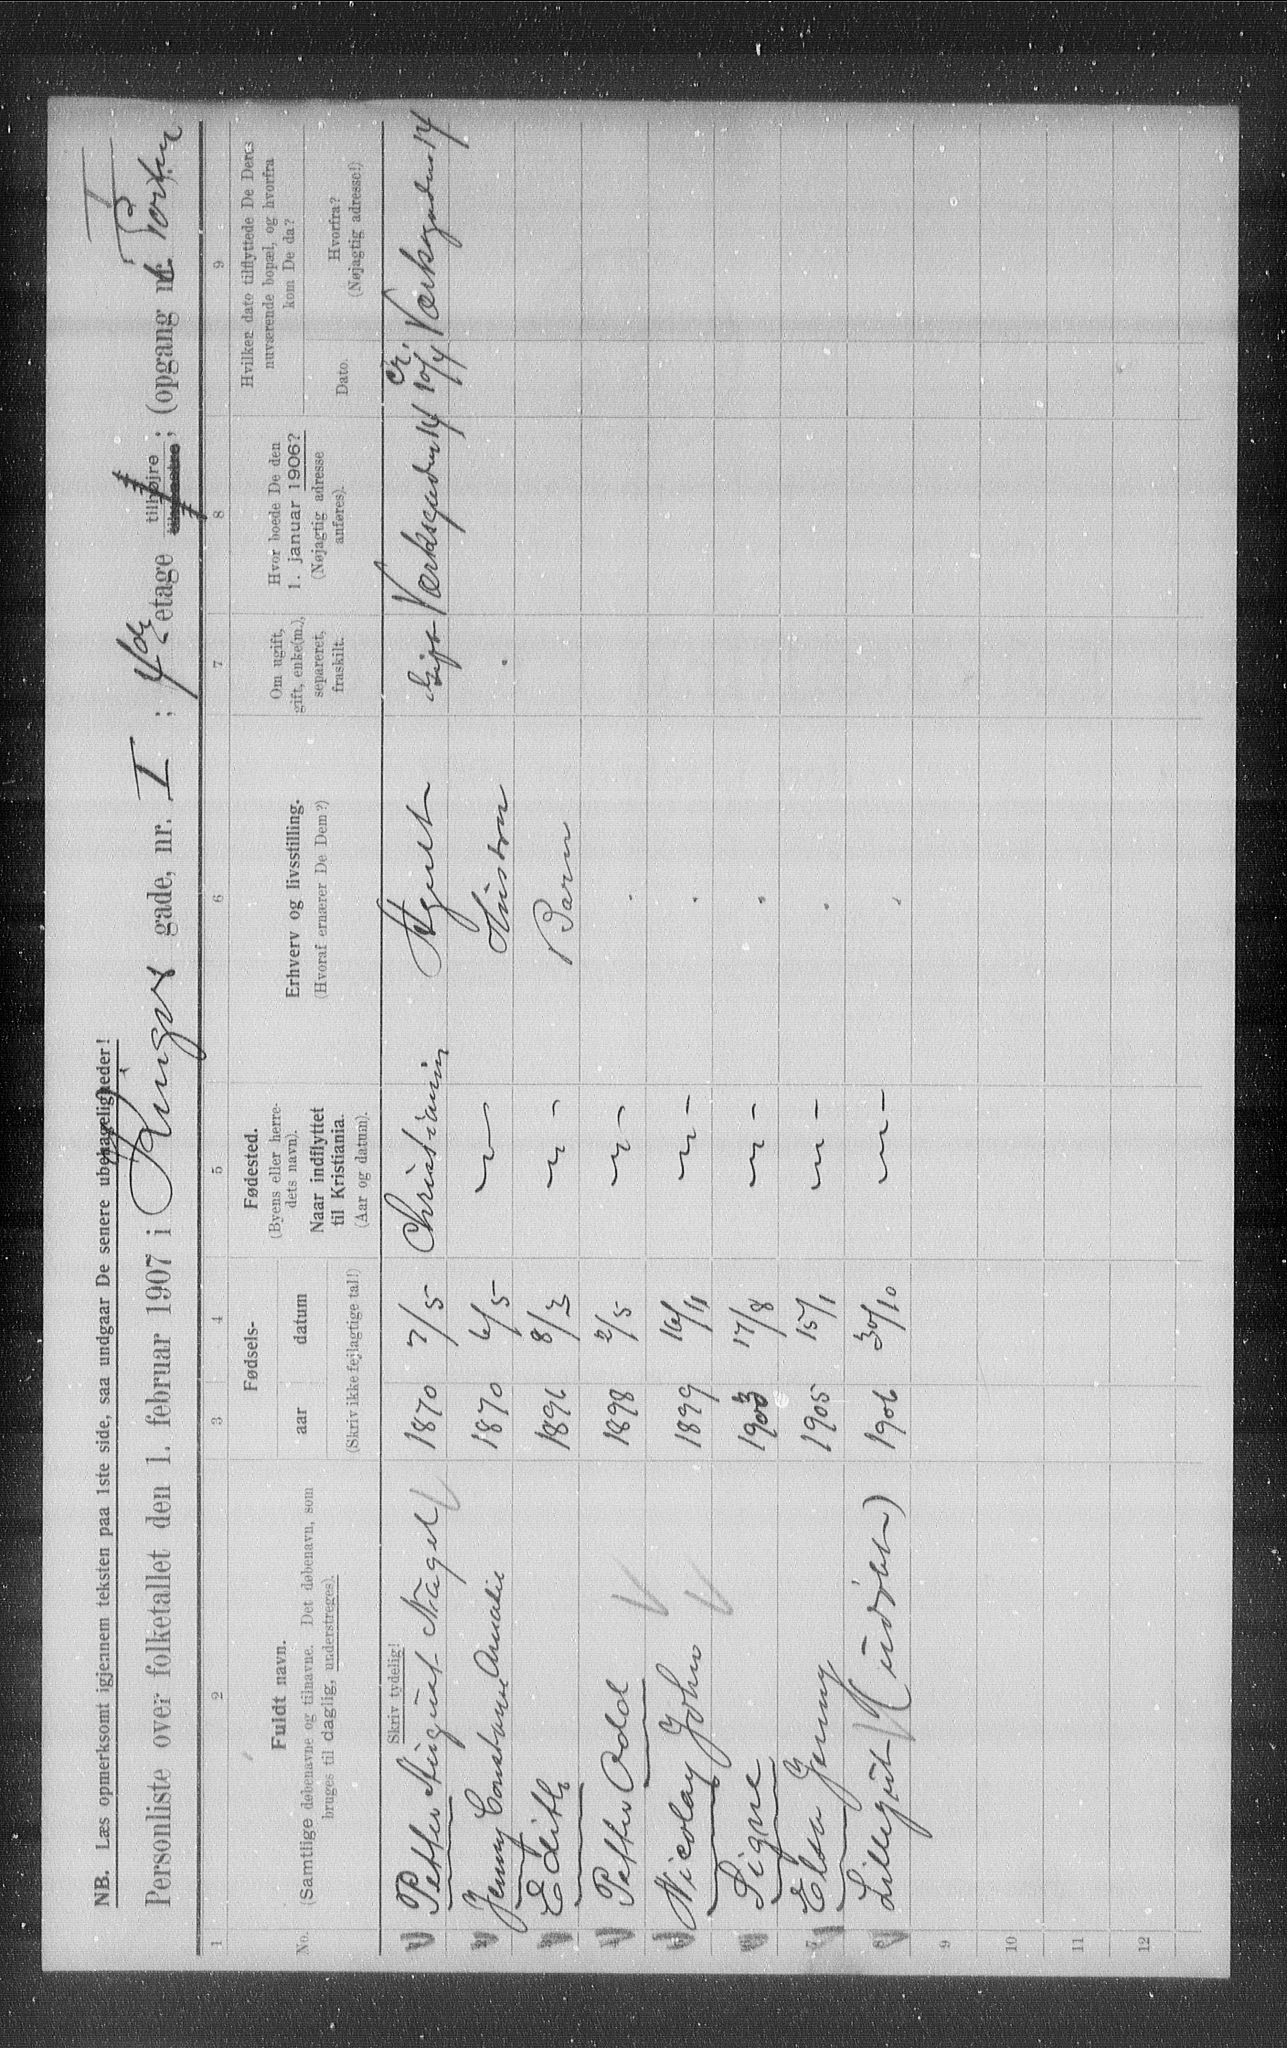 NB. Læs opmerksomt igjennem teksten paa 1ste side, saa undgaar De senere ubehageligheder!
Personliste over folketallet den 1. februar 1907 i Kingos gade, nr. I; 4de etage tilhøjre tilvenstre; (opgang nr. Porten
1 2 3 4 5 6 7 8 9
No.
Fuldt navn.
(Samtlige døbenavne og tilnavne. Det døbenavn, som
bruges til daglig, understreges).
Skriv tydelig!
Fødsels-
aar datum
(Skriv ikke fejlagtige tal!)
Fødested.
(Byens eller herre-
dets navn).
Naar indflyttet
til Kristiania.
(Aar og datum).
Erhverv og livsstilling.
(Hvoraf ernærer De Dem?)
Om ugift,
gift, enke(m.),
separeret,
fraskilt.
Hvor boede De den
1. januar 1906?
(Nøjagtig adresse
anføres).
Hvilken dato tilflyttede De Deres
nuværende bopæl, og hvorfra
kom De da?
Dato.
Hvorfra?
(Nøjagtig adresse!)
Petter August Nagel 1870 7/5 Christiania Agent Gift Værksgaden 14 cr. 10/4 Værksgaden 14
2 Jenny Constance Amalie 1870 6/5 Hustru
3 Edith 1896 8/3 Barn
4 Petter Odd 1898 2/5
5 Nicolay John 1899 16/11
Signe 1903 17/8
7 Elsa Jenny 1905 15/1
8 Lillegut (udøbt) 1906 30/10
9
10
11
12